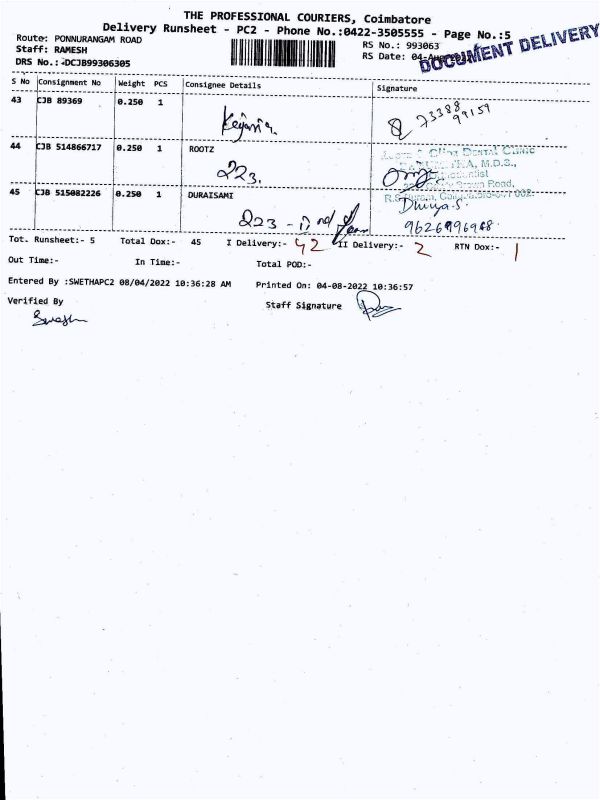 THE PROFESSIONAL COURIERS, Coimbatore
Delivery Runsheet - PC2 - Phone No.:0422-3505555 - Page No.:5
DOCUMENT DELIVERY
Route: PONNURANGAM ROAD
RS No.: 993063
Staff: RAMESH
RS Date: 04-Aug
DRS No.: DCJB99306305
S No Consignment No Weight PCS Consignee Details Signature
43 CJB 89369 0.250 1
73388
99159
44 CJB 514866717 0.250 1 ROOTZ
223.
Dental Clinic
M.D.S.,
Road,
45 CJB 515082226 0.250 1 DURAISAMI
223 - II nd
Dhivya.S
9626996968
Tot. Runsheet:- 5 Total Dox:- 45 I Delivery:- 42 II Delivery:- 2 RTN Dox:- 1
Out Time:- In Time:- Total POD:-
Entered By :SWETHAPC2 08/04/2022 10:36:28 AM Printed On: 04-08-2022 10:36:57
Verified By Staff Signature